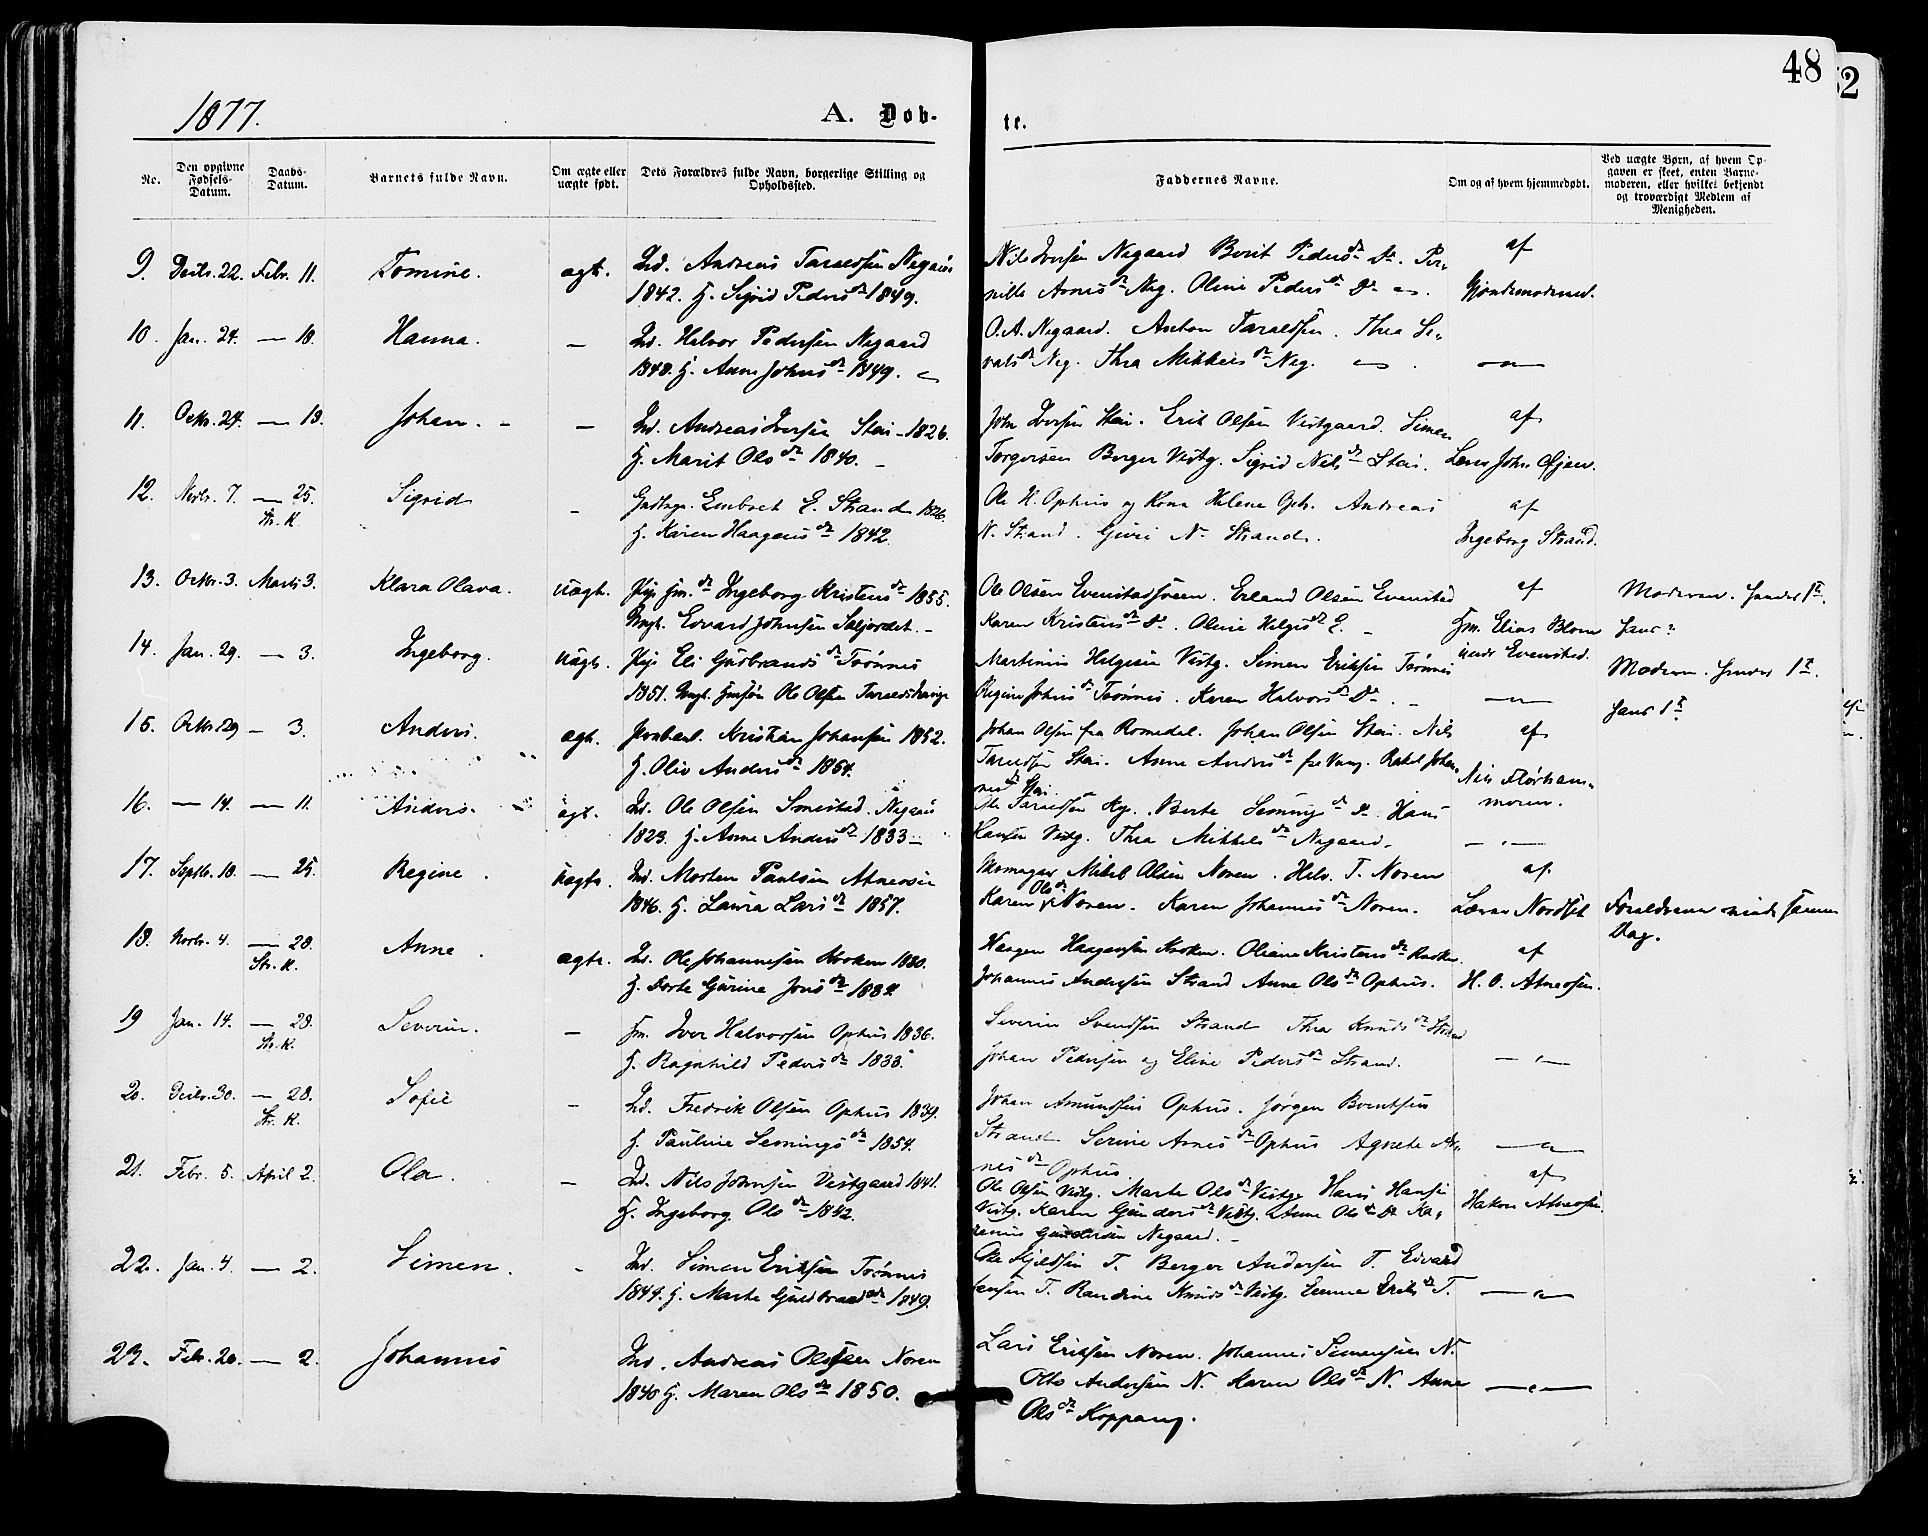 48
52
1877.
A. Døb-
te.
No.
Den opgivne Fødsels-Datum.
Daabs-Datum.
Barnets fulde Navn.
Om ægte eller uægte født.
Dets Forældres fulde Navn, borgerlige Stilling og Opholdssted.
Faddernes Navne.
Om og af hvem hjemmedøbt.
Ved uægte Børn, af hvem Opgaven er skeet, enten Barnemoderen, eller hvilket bekjendt og troværdigt Medlem af Menigheden.
9. Decbr. 22. Febr. 11. Tomine. ægt. Ind. Andreas Taraldsen Negaard
1842. H. Sigrid Pedersdr 1849.
Nils Iversen Negaard Berit Pedersdr Do. Per-
nille Arnesdr Neg. Oline Pedersdr Do
af
Gjordemoderen.
10. Jan. 24. — 18. Hanna. — Ind. Halvor Pedersen Negaard
1848. H. Anne Johnsdr 1849.
O. A. Negaard. Anton Taraldsen. Thea Si-
valsdr Neg. Thea Mikkelsdr Neg.
11. Octbr. 24. — 18. Johan. — Ind. Andreas Iversen Stai 1826.
H. Marit Olsdr 1840.
John Iversen Stai. Erik Olsen Vestgaard. Simen
Torgersen Berger Vestg. Sigrid Nilsdr Stai.
af
Lars John Øjen.
12. Novbr. 7. — 25. Sigrid — Embret E. Strand 1826.
Str. K.
H. Karen Haagensdr 1842.
Ole H. Ophus og Kona Helene Oph. Andreas
N. Strand. Guri N. Strand.
af
Ingeborg Strand.
13. Octbr. 3. Marts 3. Klara Olava. uægt. Pige Ingeborg Kristensdr 1855.
Ungk. Edvard Johnsen Skjærdet.
Ole Olsen Evenstadsveen. Erland Olsen Evenstad
Karen Kristensdr Do. Oline Helgesdr E.
af
Hm. Elias Blom
Evenstad.
Moderen. Hendes 1ste.
Hans ?
14. Jan. 29. — 3. Ingeborg. uægt. Pige Eli Gudbrandsdr Trønnes
1851. Ungk. Ole Olsen
Martinus Helgesen Vestg. Simen Eriksen Trønnes
Regine Johnsdr Trønnes. Karen Halvorsdr Do.
Moderen. Hendes 1ste.
Hans 1ste
15. Octbr. 29 — 3. Anders. ægt. Kristian Johansen 1852.
H. Oliv Andersdr 1854.
Johan Olsen fra Romedal. Johan Olsen Stai. Nils
Taraldsen Stai. Anne Andersdr fra Vang. Rakel Johan-
nesdr Stai.
af
Nils Flørhaum-
moen.
16. — 14. — 11. Anders. ægt. Ind. Ole Olsen Smestad Negaard
1823. H. Anne Andersdr 1833
Ole Taraldsen Berte Semmingsdr Do. Hans
Hansen Vestg. Thea Mikkelsdr Negaard.
17. Septbr. 10. — 25. Regine. uægte. Ind. Morten Paulsen Atneosen
1846. H. Laura Larsdr 1857.
Skomager Mikkel Olsen Noren. Halv. T. Noren
Karen Olsdr Noren. Karen Johannesdr Noren.
af
Lærer Nordset
Forældrene viede samme
Dag.
18. Novbr. 4. — 28. Anne. ægte. Ind. Ole Johannesen Kroken 1830.
Str. K.
H. Dorte Gurine Jonsdr 1834.
Haagen Haagensen Kroken. Oliane Kristensdr
Johannes Andersen Strand Anne Olsdr Ophus.
af
H. O. Atneosen.
19 Jan. 14. — 28. Severin. — Hm. Iver Halvorsen Ophus 1836.
Str. K.
H. Ragnhild Pedersdr 1833.
Severin Svendsen Strand Thea Knudsdr Strand
Johan Pedersen og Eline Pedersdr Strand.
20. Decbr. 30. — 28. Sofie — Ind. Fredrik Olsen Ophus 1839.
Str. K.
H. Pauline Semmingsdr 1854.
Johan Amundsen Ophus. Jørgen Berntsen
Strand Serine Arnesdr Ophus Agnete Ar-
nesdr Ophus.
21. Febr. 5. April 2. Ola. — Ind. Nils Johnsen Vestgaard 1841.
H. Ingeborg Olsdr 1842.
Ole Olsen Vestg. Marte Olsdr Vestg. Hans Hansen
Vestg. Karen Gundersdr Vestg. Anne Olsdr Do Ka-
Gundersen Negaard.
af
Hakon Atneosen.
22. Jan. 4. — 2. Simen. - Ind. Simen Eriksen Trønnes
1844. H. Marte Guldbrandsdr 1849.
Ole Kjeldsen T. Berger Andersen T. Edvard
Jensen T. Randine Knudsdr Vestg. Emma Eriksdr T.
23. Febr. 20. — 2. Johannes Ind. Andreas Olsen Noren
1840 H. Maren Olsdr 1850.
Lars Eriksen Noren. Johannes Simensen N.
Otto Andersen N. Karen Olsdr N. Anne
Olsdr Koppang.